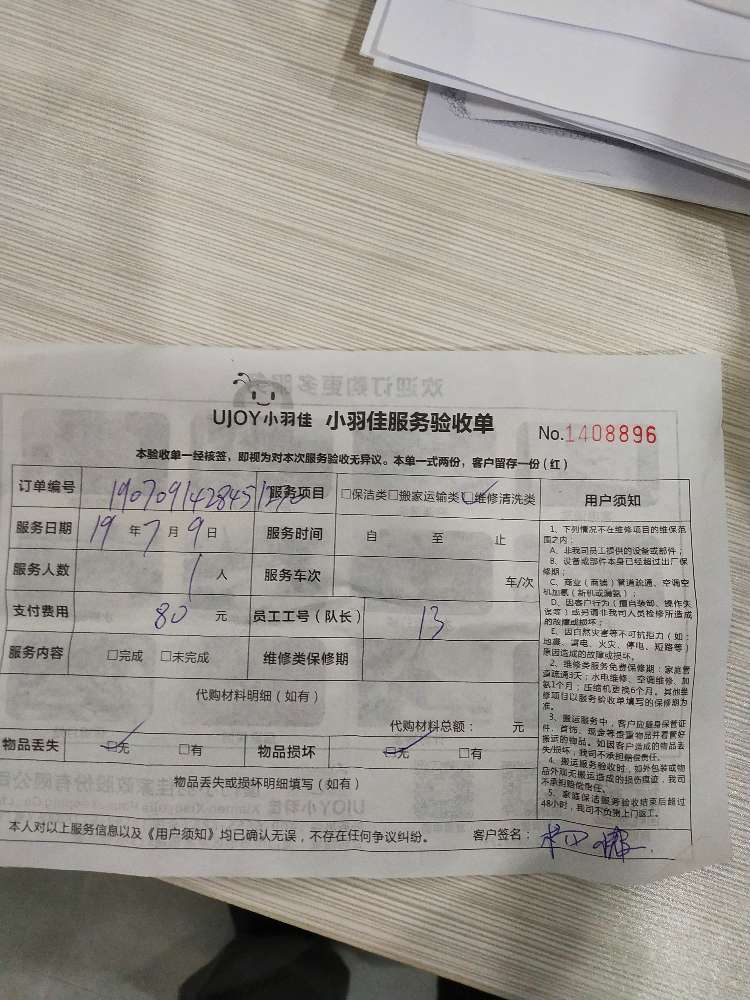 UJOY小羽佳 小羽佳服务验收单 No.1408896
本验收单一经核签，即视为对本次服务验收无异议。本单一式两份，客户留存一份（红）
订单编号 服务项目 □保洁类□搬家运输类□维修清洗类 用户须知
服务日期 19 年 7 月 9 日 服务时间 自 至 止
服务人数 1 人 服务车次 车/次
支付费用 80 元 员工工号（队长） 13
服务内容 □完成 □未完成 维修类保修期
代购材料明细（如有）
代购材料总额： 元
物品丢失 □无 □有 物品损坏 □无 □有
物品丢失或损坏明细填写（如有）
本人对以上服务信息以及《用户须知》均已确认无误，不存在任何争议纠纷。 客户签名：
1、下列情况不在维修项目的维保范
围之内：
A、非我司员工提供的设备或部件；
B、设备或部件本身已经超过出厂保
修期；
C、商业（商铺）管道疏通、空调空
机加氟（新机或漏氟）；
D、因客户行为（擅自装卸、操作失
误等）或另请非我司人员检修所造成
的故障或损坏；
E、因自然灾害等不可抗拒力（如：
地震、雷电、火灾、停电、短路等）
原因造成的故障或损坏。
2、维修类服务免费保修期：家庭管
道疏通3天；水电维修、空调维修、加
氨1个月；压缩机更换6个月。其他维
修项目以服务验收单填写的保修期为
准。
3、搬运服务中，客户应随身保管证
件、首饰、现金等贵重物品并看管好
搬运的物品。如因客户造成的物品丢
失/损坏，我司不承担赔偿责任。
4、搬运服务验收时，如外包装或物
品外观无搬运造成的损伤痕迹，我司
不承担赔偿责任。
5、家庭保洁服务验收结束后超过
48小时，我司不负责上门返工。